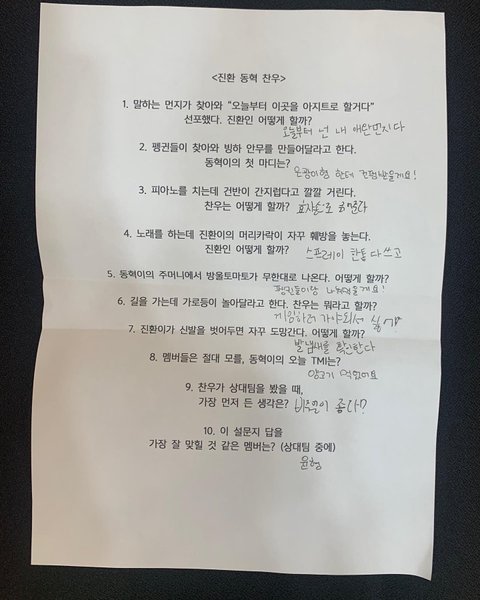 <진환 동혁 찬우>
1. 말하는 먼지가 찾아와 "오늘부터 이곳을 아지트로 할거다"
선포했다. 진환인 어떻게 할까?
오늘부터 넌 내 애완먼지다
2. 펭귄들이 찾아와 빙하 안무를 만들어달라고 한다.
동혁이의 첫 마디는?
은광이형 한테 컨펌받을게요!
3. 피아노를 치는데 건반이 간지럽다고 깔깔 거린다.
찬우는 어떻게 할까?
효자손으로
4. 노래를 하는데 진환이의 머리카락이 자꾸 훼방을 놓는다.
진환인 어떻게 할까?
스프레이 한통 다쓰고
5. 동혁이의 주머니에서 방울토마토가 무한대로 나온다. 어떻게 할까?
팬분들이랑
6. 길을 가는데 가로등이 놀아달라고 한다. 찬우는 뭐라고 할까?
게임하러 가야되서 싫어
7. 진환이가 신발을 벗어두면 자꾸 도망간다. 어떻게 할까?
발냄새를 확인한다
8. 멤버들은 절대 모를, 동혁이의 오늘 TMI는?
양고기 먹었어요
9. 찬우가 상대팀을 봤을 때,
가장 먼저 든 생각은? 비주얼이 좋다?
10. 이 설문지 답을
가장 잘 맞힐 것 같은 멤버는? (상대팀 중에)
윤형